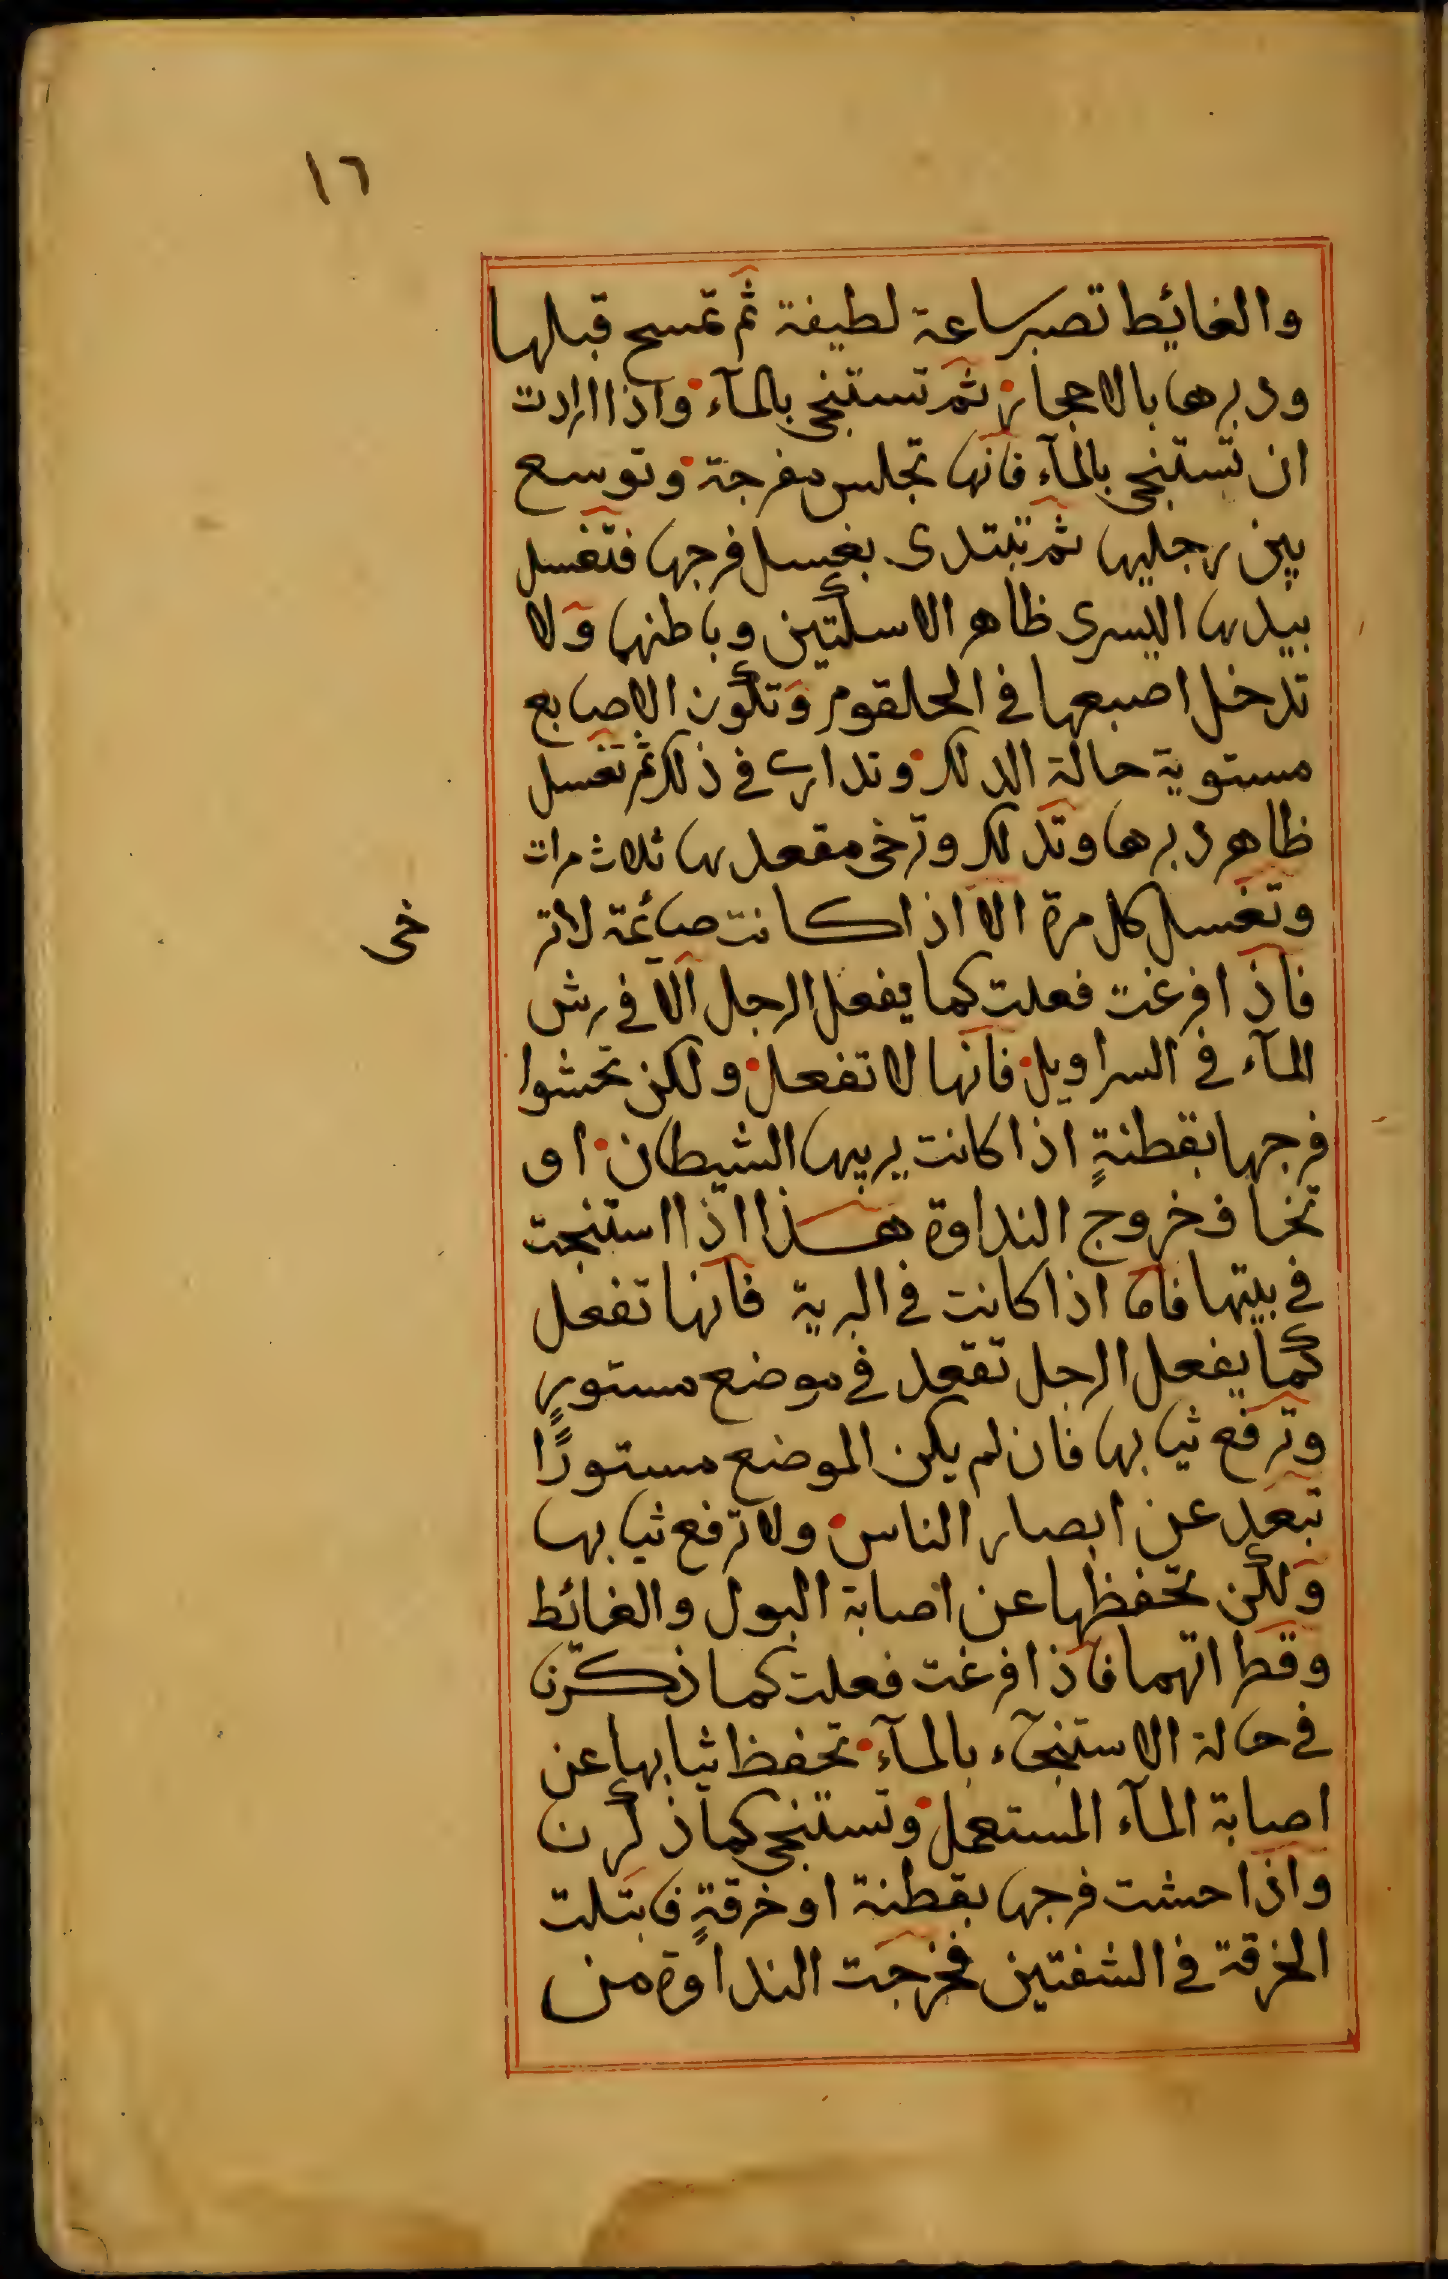 ١٦
والغائط تصبر ساعة لطيفة ثم تمسح قبلها
ودبرها بالاحجار ثم تستنجي بالمآء واذا ارادت
ان تستنجي بالمآء فانها تجلس مفرجة وتوسع
بين رجليها ثم تبتدى بغسل فرجها فتغسل
بيدها اليسرى ظاهر الاسكتين وباطنها ولا
تدخل اصبعها في الحلقوم وتكون الاصابع
مستوية حالة الدلك وتدارى في ذلك ثم تغسل
ظاهر دبرها وتدلك وترخى مقعدها ثلاث مرات
وتغسل كل مرة الا اذا كانت صائمة لاتر
خى
فاذا فرغت فعلت كما يفعل الرجل الا في رش
المآء في السراويل فانها لا تفعل ولكن تحشوا
فرجها بقطنةٍ اذا كانت يريبها الشيطان او
تخاف خروج النداوة هذا اذا استنجت
في بيتها فاما اذا كانت في البرية فانها تفعل
كما يفعل الرجل تقعد في موضع مستورٍ
وترفع ثيابها فان لم يكن الموضع مستورًا
تبعد عن ابصار الناس ولا ترفع ثيابها
ولكن تحفظها عن اصابة البول والغائط
وقطراتهما فاذا فرغت فعلت كما ذكرنا
في حالة الاستنجآء بالمآء تحفظ ثيابها عن
اصابة المآء المستعمل وتستنجي كما ذكرنا
واذا حشت فرجها بقطنة او خرقةٍ فابتلت
الخرقة في الشفتين فخرجت النداوة من